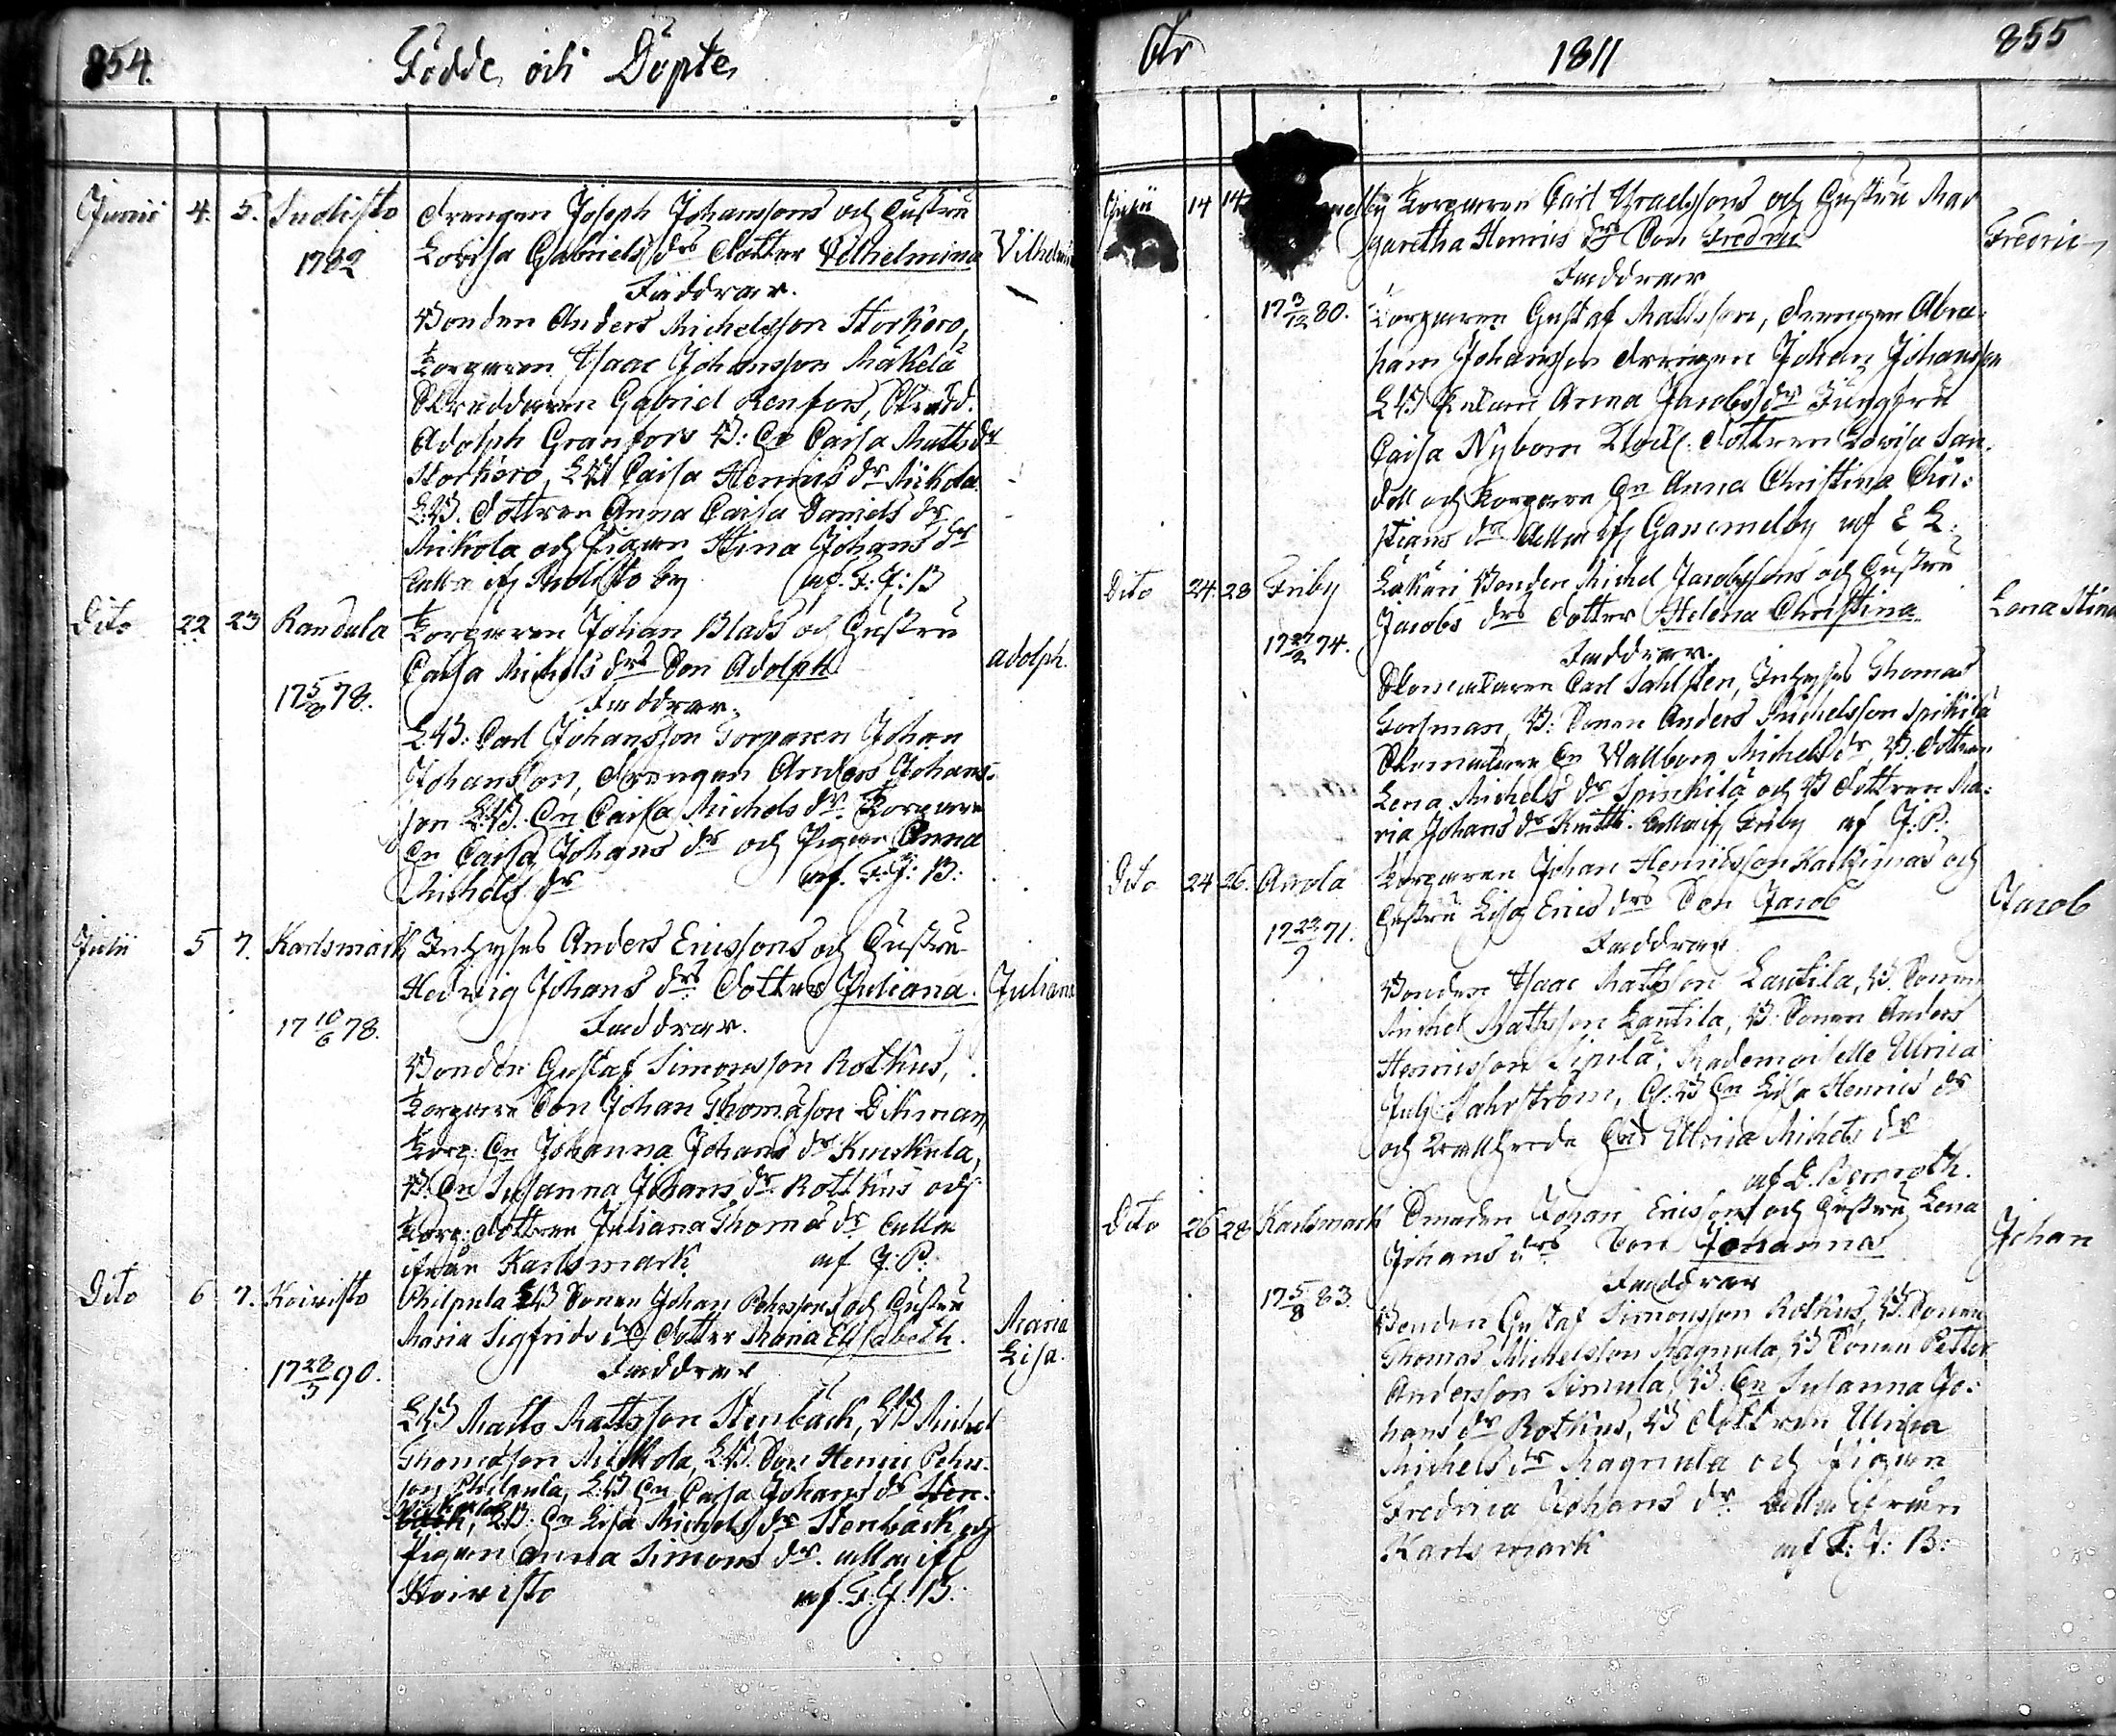 854.
Födde och Döpte
Junii 4. 5. Suolisto Drengen Joseph Johanssons och Hustru
1782 Lovisa Gabriels drs Dotter Vilhelmina Vilhelmin
Faddrar.
Bonden Anders Michelsson Storkäro,
Torparen Isaac Johansson Mäkelä
Skreddaren Gabriel Renfors, Skredd.
Adolph Granfors B: Hn Caisa Matts dr
Storkäro, LB Caisa Henrics dr Nickola
LB. Dottren Anna Caisa Daniels dr
Nickola och Pigan Stina Johans dr
alla ifr Suolisto by af. F: J: B
Dito 22 23 Randula Torparen Johan Blads och Hustru
Caisa Michels drs Son Adolph Adolph.
17 5/8 78. Faddrar.
LB. Carl Johansson Torparen Johan
Johansson, Drengen Anders Johans-
son LB. Hn Caisa Michels dr. Torpare
Hn Caisa Johans dr och Pigan Anna
Michels dr af. F: J: B:
Julii 5 7. Karlsmark Inhyses Anders Ericssons och Hustru
Hedvig Johans drs Dotter Juliana. Juliana
17 10/6 78. Faddrar.
Bonden Gustaf Simonsson Rothus,
Torpare Son Johan Thomasson Dikman,
Torp: Hn Johanna Johans dr Kuiskula,
B. Hn Susanna Johans dr Rothus och
Torp: Dottren Juliana Thomas dr alla
ifrån Karlsmark af J. P.
Dito 6 7. Koivisto Philpula LB Sonen Johan Pehrssons och Hustru
Maria Sigfrids drs Dotter Maria Elisabeth. Maria Lisa.
17 28/5 90. Faddrar
LB Matts Mattsson Stenbäck, LB Michel
Thomasson Nickola, LB. Son Henric Pehrs-
son Philpula, LB Hn Caisa Johans dr Sten-
bäck, LB. Hn Lisa Michels dr Stenbäck och
Pigan Anna Simons dr. alla ifr
Koivisto af. F. J. B.
År 1811 855
Julii 14 14 Torparen Carl Israelssons och Hustru Mar
garetha Henrics drs Son Fredric Fredric
Faddrar
17 3/12 80. Torparen Gustaf Mattsson, Drengen Abra-
ham Johansson Drengen Johan Johansson
LB Enkan Anna Jacobs dr Jungfru
Caisa Nybom Klock. Dottren Lovisa San-
dell och Torpare Hn Anna Christina Chri-
stians dr alla ifr Gammelby af E L.
Dito 24. 28 Friby Lukäri Bonden Michel Jacobssons och Hustru
Jacobs drs Dotter Helena Christina Lena Stina
17 27/2 74. Faddrar.
Skomakaren Carl Sahlsten, Inhyses Thomas
Forsman, B: Sonen Anders Michelsson Spinkilä
Skomakare Hn Wallborg Michels dr, B. Dottren
Lena Michels dr Spinkilä och B Dottren Ma-
ria Johans dr Knitti. alla ifr Friby af J: P:
Dito 24 26. Anola Torparen Johan Henricsson Karkimas och
Hustru Lisa Erics drs Son Jacob Jacob
17 23/9 71. Faddrar
Bonden Isaac Mattsson Lautila, B. Sonen
Michel Mattsson Lautila, B: Sonen Anders
Henricsson Sipilä; Mademoiselle Ulrica
Sahlström, LB Hn Lisa Henrics dr
och Hn Ulrica Michels dr
af D. Bergroth.
Dito 26 28 Karlsmark Smeden Johan Ericssons och Hustru Lena
Johans drs Son Johannes Johan
17 5/8 83. Faddrar
Bonden Gustaf Simonsson Rothus, B. Sonen
Thomas Michelsson Magnula, B Sonen Petter
Andersson Simula, B. Hn Susanna Jo-
hans dr Rothus, B Dottren Ulrica
Michels dr Magnula och Pigan
Fredrica Johans dr alla ifrån
Karlsmark af F: J: B: